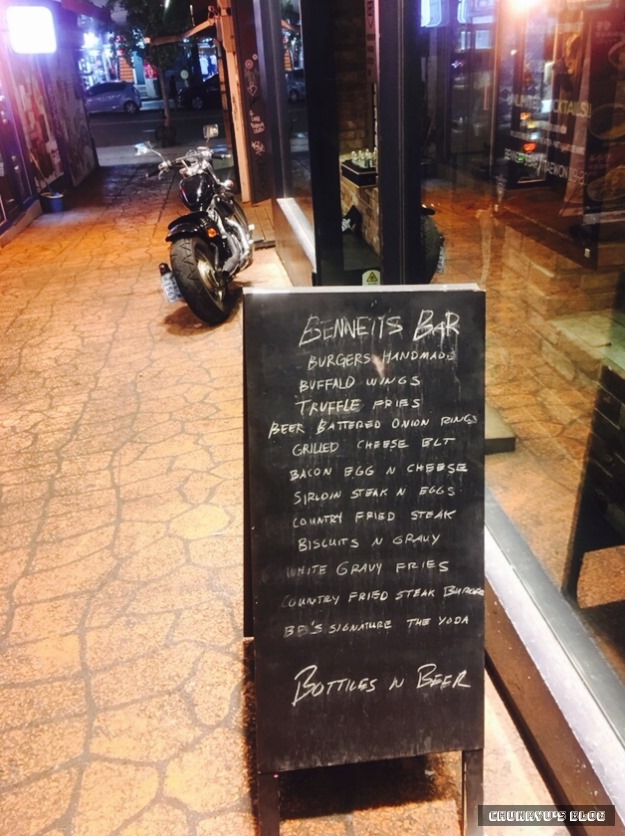 BENNETTS BAR
BURGERS HANDMADE
BUFFALO WINGS
TRUFFLE FRIES
BEER BATTERED ONION RINGS
GRILLED CHEESE BLT
BACON EGG N CHEESE
SIRLOIN STEAK N EGGS
COUNTRY FRIED STEAK
BISCUITS N GRAVY
WHITE GRAVY FRIES
COUNTRY FRIED STEAK BURGER
BB'S SIGNATURE THE YODA
BOTTLES N BEER
CHUKRYU'S BLOG